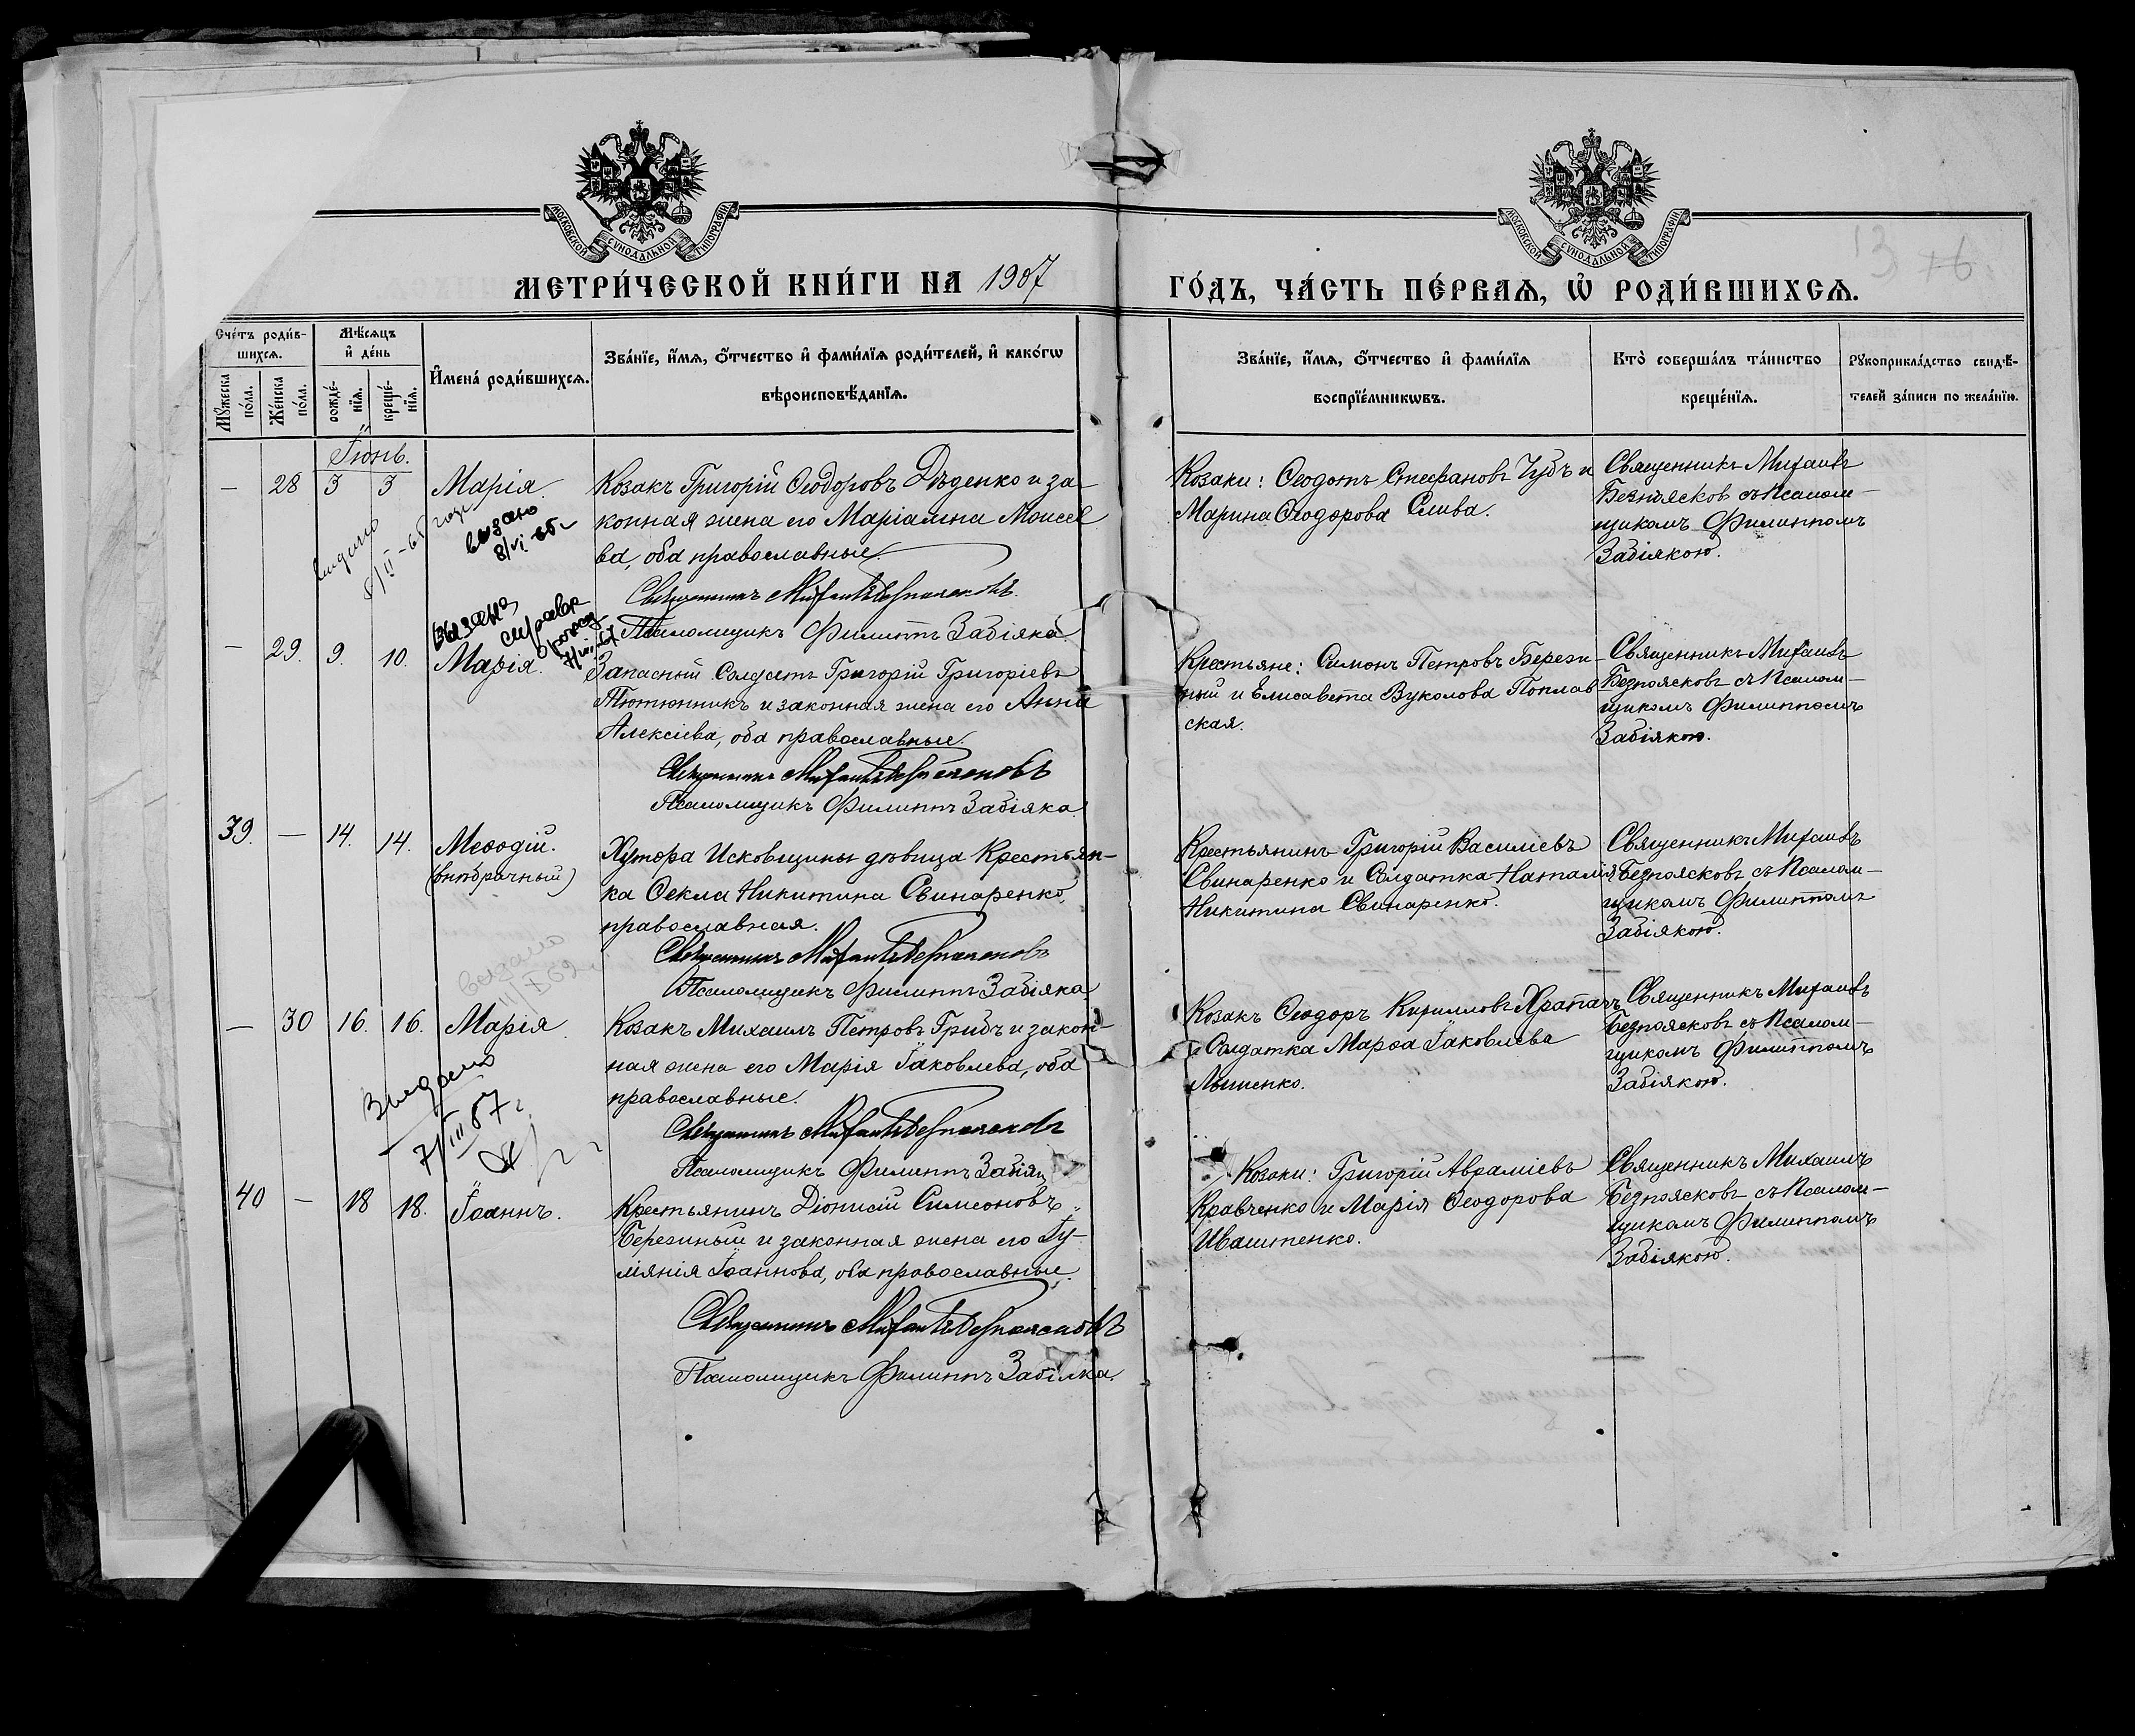 МОСКОВСКОЙ СѴНОДАЛЬНОЙ ТИПОГРАФІИ
МОСКОВСКОЙ СѴНОДАЛЬНОЙ ТИПОГРАФІИ
13
МЕТРИ́ЧЕСКОЙ КНИ́ГИ НА 1907
ГО́ДЪ, ЧА́СТЬ ПЕ́РВАѦ, Ѡ҆ РОДИ́ВШИХСѦ.
Сче́тъ роди́в-
шихсѧ.
Мꙋ́жеска по́ла.
Же́нска по́ла.
Мѣ́сѧцъ
и҆ де́нь
рожде́-
нїѧ.
креще́-
нїѧ.
И҆мена̀ роди́вшихсѧ.
Зва́нїе, и҆́мѧ, ѻ҆́тчество и҆ фами́лїѧ роди́телей, и҆ како́гѡ
вѣроисповѣ́данїѧ.
Зва́нїе, и҆́мѧ, ѻ҆́тчество и҆ фами́лїѧ
воспрїе́мникѡвъ.
Кто̀ соверша́лъ та́инство
креще́нїѧ.
Рꙋкоприкла́дство свидѣ́-
телей за́писи по жела́нїю.
Іюнь.
— 28 3 3 Марія.
Козакъ Григорій Ѳеодоровъ Дѣденко и за-
конная жена его Маріамна Моисее
ва, оба православные.
Священникъ Михаилъ Безпоясковъ.
Псаломщикъ Филиппъ Забіяка.
Козаки: Ѳеодотъ Стефановъ Чубъ и
Марина Ѳеодорова Слива.
Священникъ Михаилъ
Безпоясковъ съ Псалом-
щикомъ Филиппомъ
Забіякою.
видано
выдано
8/VI-65г
— 29. 9. 10. Марія.
Запасный Солдатъ Григорій Григоріевъ
Тютюнникъ и законная жена его Анна
Алексіева, оба православные.
Священникъ Михаилъ Безпоясковъ
Псаломщикъ Филиппъ Забіяка.
Крестьяне: Симонъ Петровъ Берези-
ный и Елисавета Вуколова Поплав
ская.
Священникъ Михаилъ
Безпоясковъ съ Псалом-
щикомъ Филиппомъ
Забіякою.
39. — 14. 14. Меѳодій.
(внѣбрачный)
Хутора Исковщины дѣвица Крестьян-
ка Ѳекла Никитина Свинаренко,
православная.
Священникъ Михаилъ Безпоясковъ
Псаломщикъ Филиппъ Забіяка.
Крестьянинъ Григорій Василіевъ
Свинаренко и Солдатка Наталія
Никитина Свинаренко.
Священникъ Михаилъ
Безпоясковъ съ Псалом-
щикомъ Филиппомъ
Забіякою.
выдано
— 30 16. 16. Марія
Козакъ Михаилъ Петровъ Грибъ и закон-
ная жена его Марія Іаковлева, оба
православные.
Священникъ Михаилъ Безпоясковъ
Псаломщикъ Филиппъ Забіяка
Козакъ Ѳеодоръ Кирилловъ Храпачъ
Солдатка Марѳа Іаковлева
Священникъ Михаилъ
Безпоясковъ съ Псалом-
щикомъ Филиппомъ
Забіякою.
Видано
7/III 67г.
40 — 18 18. Іоаннъ.
Крестьянинъ Діонисій Симеоновъ
Березиный и законная жена его Іу-
ліанія Іоаннова, оба православные.
Священникъ Михаилъ Безпоясковъ
Псаломщикъ Филиппъ Забіяка.
Козаки: Григорій Авраміевъ
Кравченко и Марія Ѳеодорова
Ивашенко.
Священникъ Михаилъ
Безпоясковъ съ Псалом-
щикомъ Филиппомъ
Забіякою.